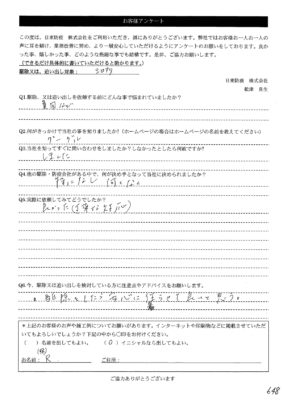 お客様アンケート
この度は、日東防疫 株式会社をご利用いただき、誠にありがとうございます。弊社ではお客様一人お一人の
声に耳を傾け、業務改善に努め、より一層安心していただけるようにアンケートのお願いをしております。良かっ
た事、嬉しかった事、どのような些細な事でも結構です。是非、ご協力お願いします。
(できるだけ具体的に書いていただけると助かります。)
日東防疫 株式会社
駆除又は、追い出し対象:
Q1.駆除、又は追い出しを依頼する前にどんな事で悩まれていましたか?
Q2.何がきっかけで当社の事を知りましたか?(ホームページの場合はホームページの名前を教えてください)
グーグル
Q3.当社を知ってすぐに問い合わせをしましたか?しなかったとしたら何故ですか?
しました
Q4.他の駆除・防疫会社がある中で、何が決め手となって当社に決められましたか?
特になし
Q5.実際に依頼してみてどうでしたか?
良かった
Q6.今、駆除又は追い出しを検討している方に注意点やアドバイスをお願いします。
*上記のお客様のお声や施工例についてお願いがあります。インターネットや印刷物などに掲載させていただ
いてもよろしいでしょうか?下記の中から○印をお付けください。
( )名前を出してもよい。 (○)イニシャルなら出してもよい。
(姓)
お名前: R. ご住所:
ご協力ありがとうございます
648